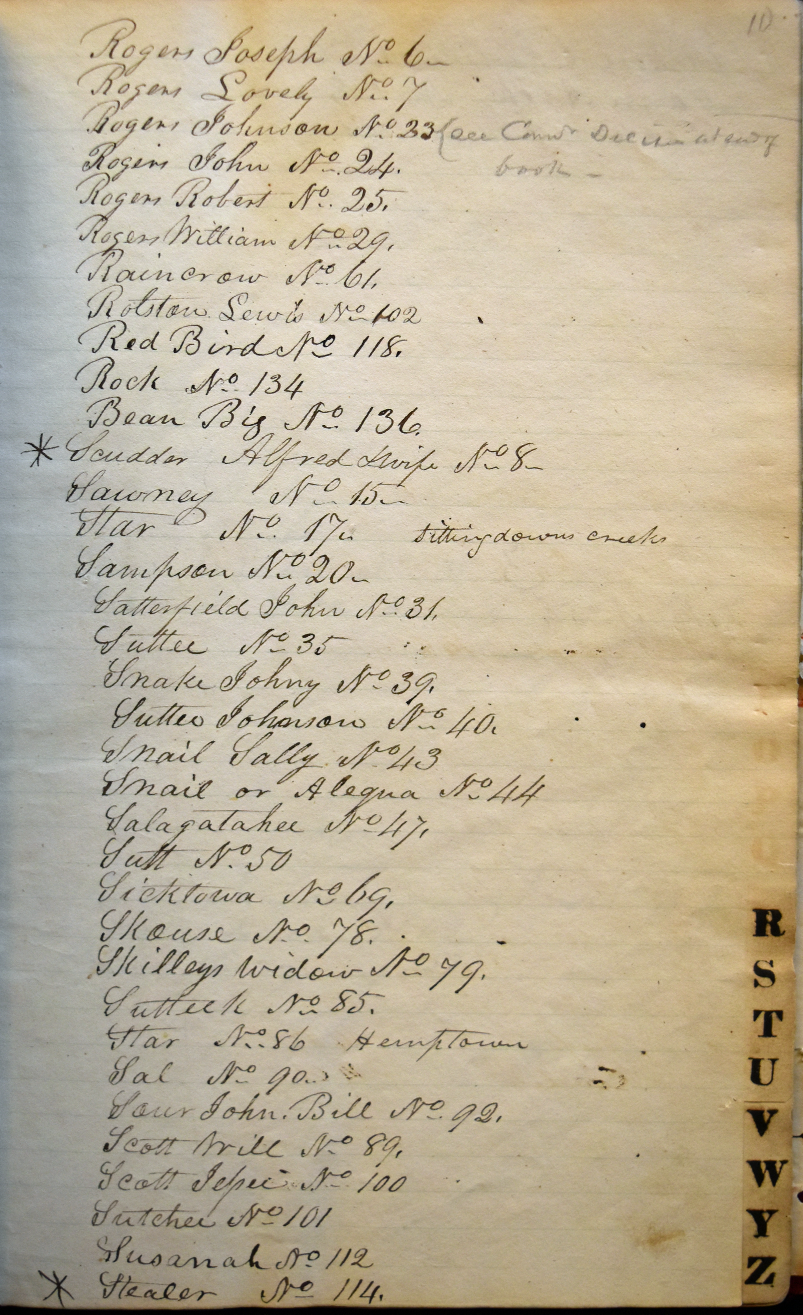 10
Rogers Joseph No. 6
Rogers Lovely No. 7
Rogers Johnson No. 23 (see Comrs Decision at end of
book
Rogers John No. 24.
Rogers Robert No. 25.
Rogers William No. 29.
Raincrow No. 61.
Rolston Lewis No. 102
Red Bird No. 118.
Rock No. 134
Bean Big No. 136.
* Scudder Alfred & wife No. 8
Sawney No. 15
Star No. 17 Sittingdowns creeks
Sampson No. 20
Satterfield John No. 31.
Suttee No. 35
Snake Johny No. 39.
Suttee Johnson No. 40.
Snail Sally No. 43
Snail or Alequa No. 44
Salagatahee No. 47.
Sutt No. 50
Sicktowa No. 69.
Skouse No. 78.
Skilleys widow No. 79.
Sutteek No. 85.
Star No. 86 Hemptown
Sal No. 90
Sour John. Bill No. 92.
Scott Will No. 89.
Scott Jesse No. 100
Sutchee No. 101
Susanah No. 112
* Stealer No. 114.
R
S
T
U
V
W
Y
Z